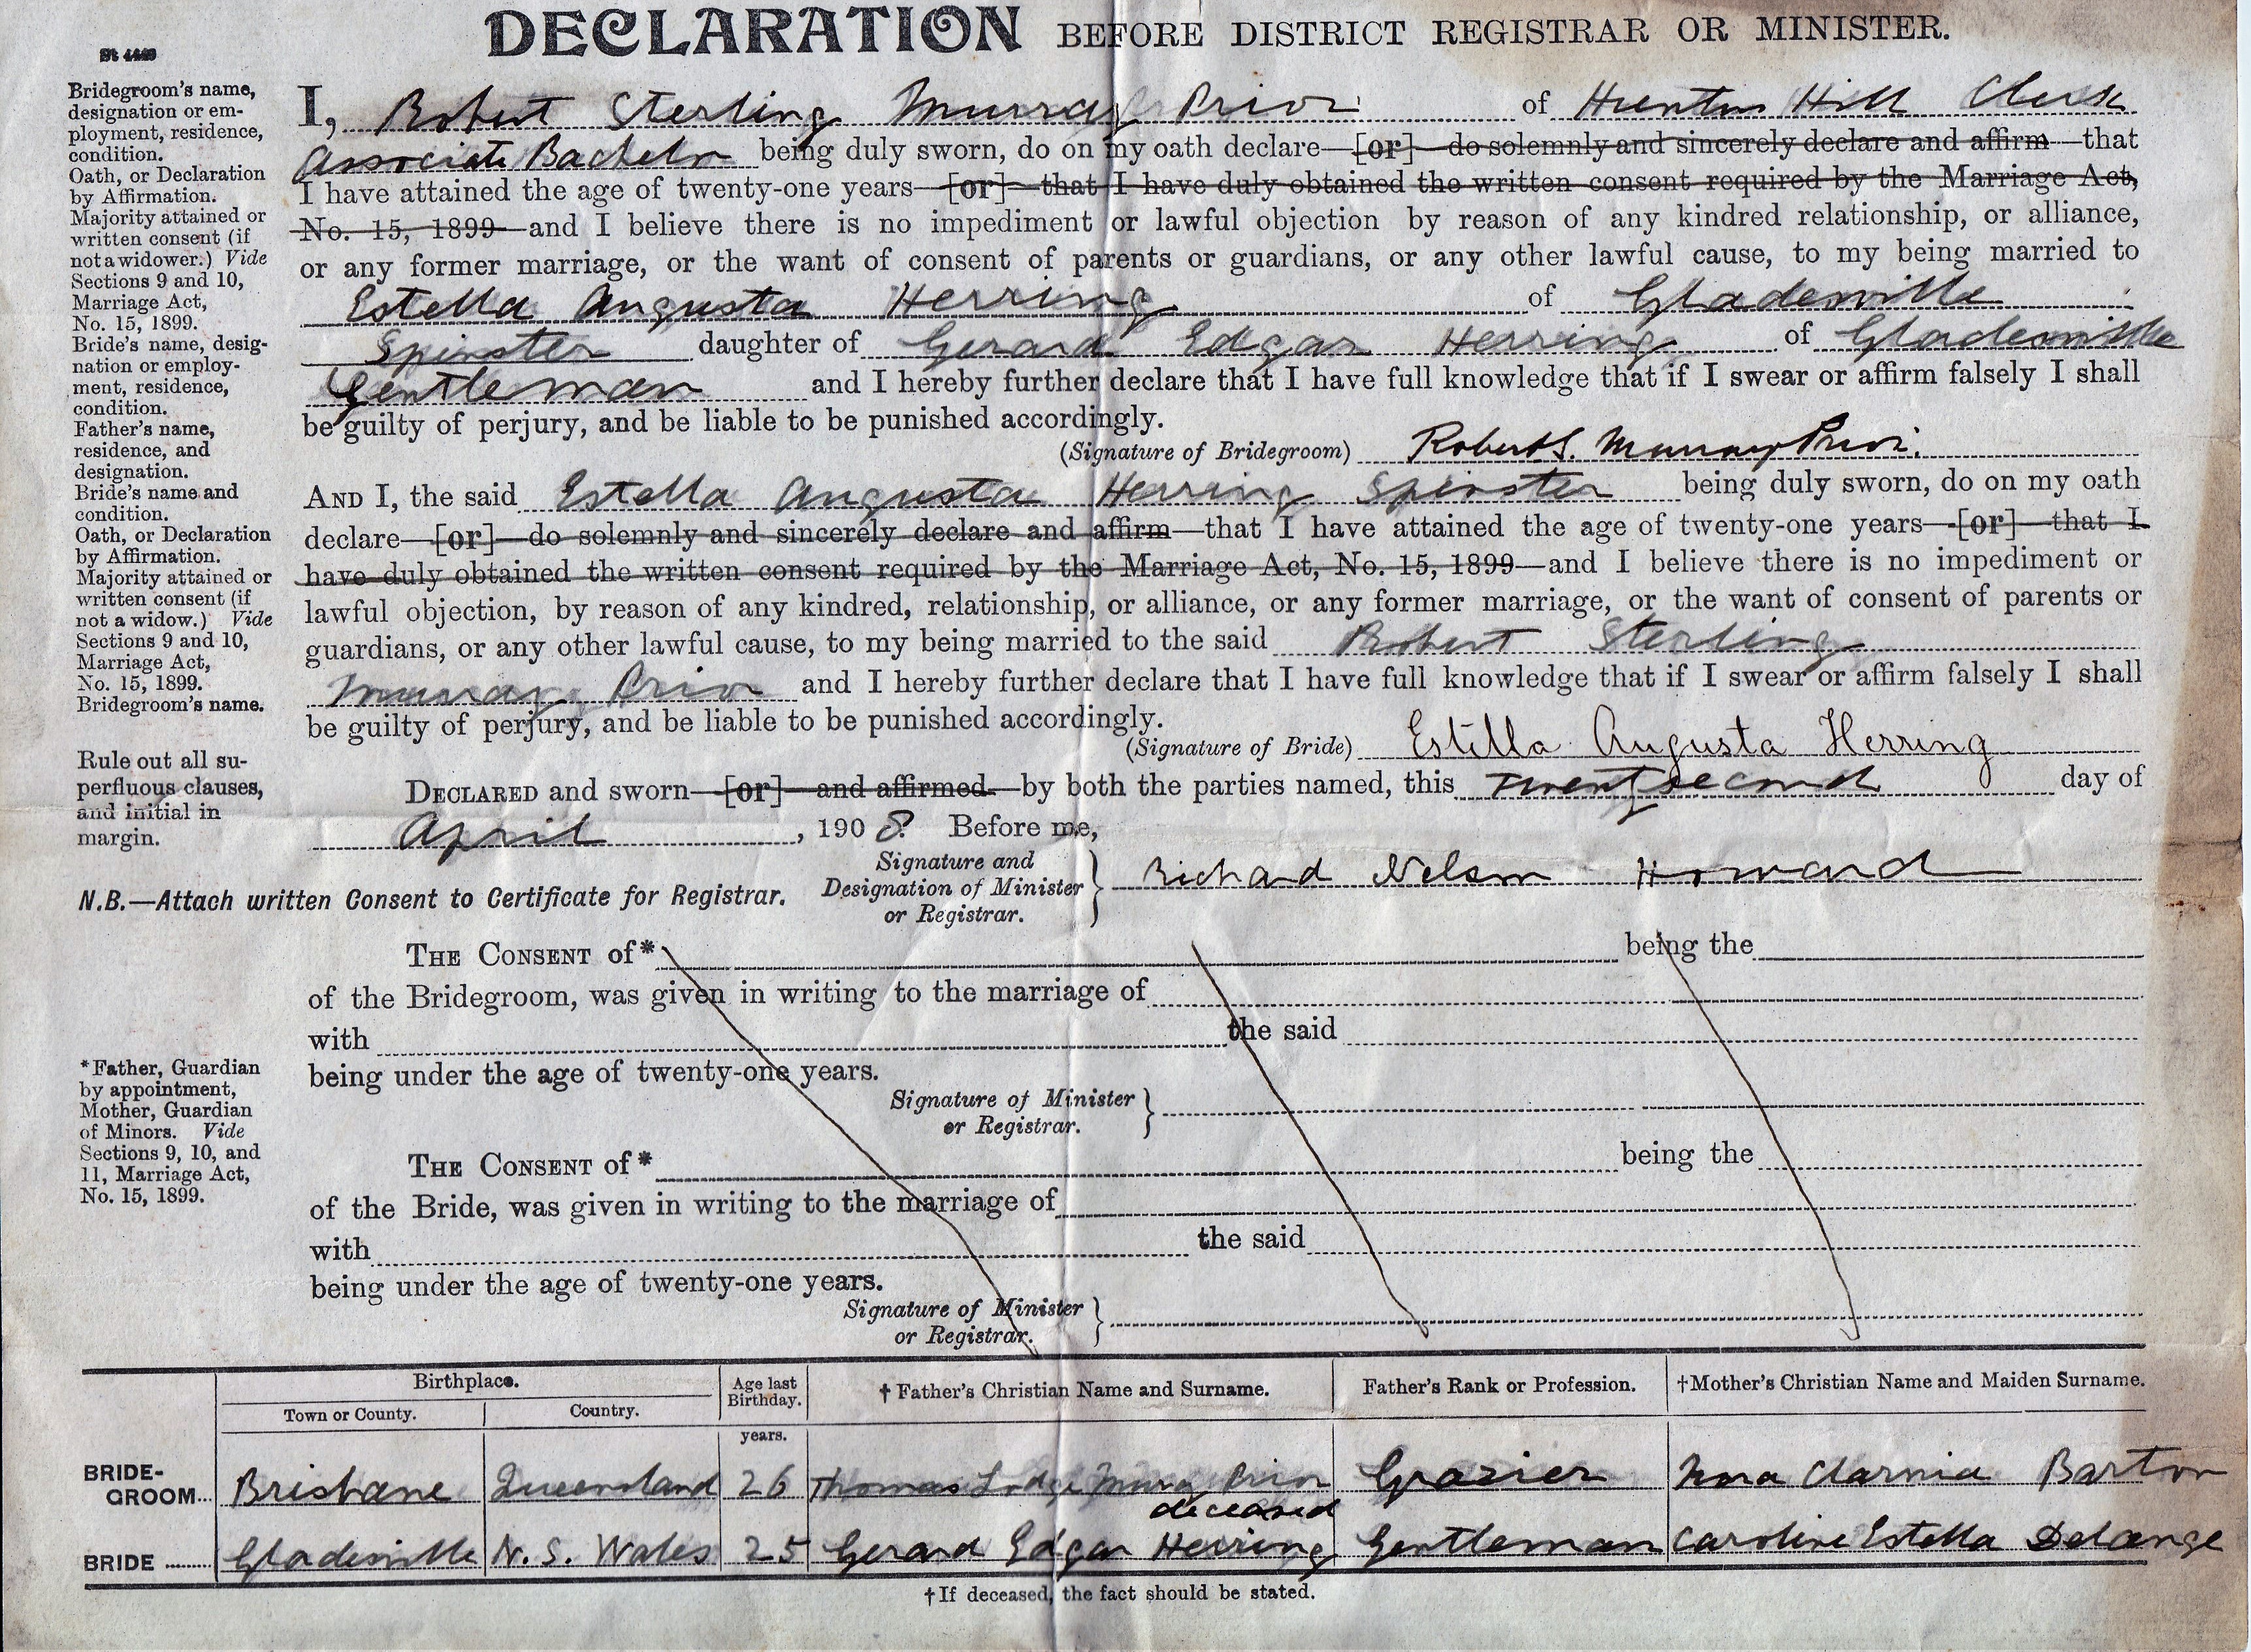 DECLARATION BEFORE DISTRICT REGISTRAR OR MINISTER.
Bridegroom's name,
designation or em-
ployment, residence,
condition.
Oath, or Declaration
by Affirmation.
Majority attained or
written consent (if
not a widower.) Vide
Sections 9 and 10,
Marriage Act,
No. 15, 1899.
Bride's name, desig-
nation or employ-
ment, residence,
condition.
Father's name,
residence, and
designation.
Bride's name and
condition.
Oath, or Declaration
by Affirmation.
Majority attained or
written consent (if
not a widow.) Vide
Sections 9 and 10,
Marriage Act,
No. 15, 1899.
Bridegroom's name.
Rule out all su-
perfluous clauses,
and initial in
margin.
I, Robert Sterling Murray Prior of Hunters Hill Clerk
Associate Bachelor being duly sworn, do on my oath declare—[or]—do solemnly and sincerely declare and affirm—that
I have attained the age of twenty-one years—[or]—that I have duly obtained the written consent required by the Marriage Act,
No. 15, 1899—and I believe there is no impediment or lawful objection by reason of any kindred relationship, or alliance,
or any former marriage, or the want of consent of parents or guardians, or any other lawful cause, to my being married to
Estella Augusta Herring of Gladesville
Spinster daughter of Gerard Edgar Herring of Gladesville
Gentleman and I hereby further declare that I have full knowledge that if I swear or affirm falsely I shall
be guilty of perjury, and be liable to be punished accordingly.
(Signature of Bridegroom) Robert S. Murray Prior.
AND I, the said Estella Augusta Herring Spinster being duly sworn, do on my oath
declare—[or]—do solemnly and sincerely declare and affirm—that I have attained the age of twenty-one years—[or]—that I
have duly obtained the written consent required by the Marriage Act, No. 15, 1899—and I believe there is no impediment or
lawful objection, by reason of any kindred, relationship, or alliance, or any former marriage, or the want of consent of parents or
guardians, or any other lawful cause, to my being married to the said Robert Sterling
Murray Prior and I hereby further declare that I have full knowledge that if I swear or affirm falsely I shall
be guilty of perjury, and be liable to be punished accordingly.
(Signature of Bride) Estella Augusta Herring
DECLARED and sworn—[or]—and affirmed.—by both the parties named, this twenty second day of
April, 1908. Before me,
Signature and
Designation of Minister
or Registrar. } Richard Nelson Howard
N.B.—Attach written Consent to Certificate for Registrar.
THE CONSENT of* being the
of the Bridegroom, was given in writing to the marriage of
with the said
being under the age of twenty-one years.
Signature of Minister
or Registrar. }
*Father, Guardian
by appointment,
Mother, Guardian
of Minors. Vide
Sections 9, 10, and
11, Marriage Act,
No. 15, 1899.
THE CONSENT of* being the
of the Bride, was given in writing to the marriage of
with the said
being under the age of twenty-one years.
Signature of Minister
or Registrar. }
Birthplace. Age last Birthday. †Father's Christian Name and Surname. Father's Rank or Profession. †Mother's Christian Name and Maiden Surname.
Town or County. Country.
years.
BRIDE-
GROOM... Brisbane Queensland 26 Thomas Lodge Murray Prior Grazier Barton
deceased
BRIDE ........ Gladesville N. S. Wales 25 Gerard Edgar Herring Gentleman Caroline Estella Delange
†If deceased, the fact should be stated.